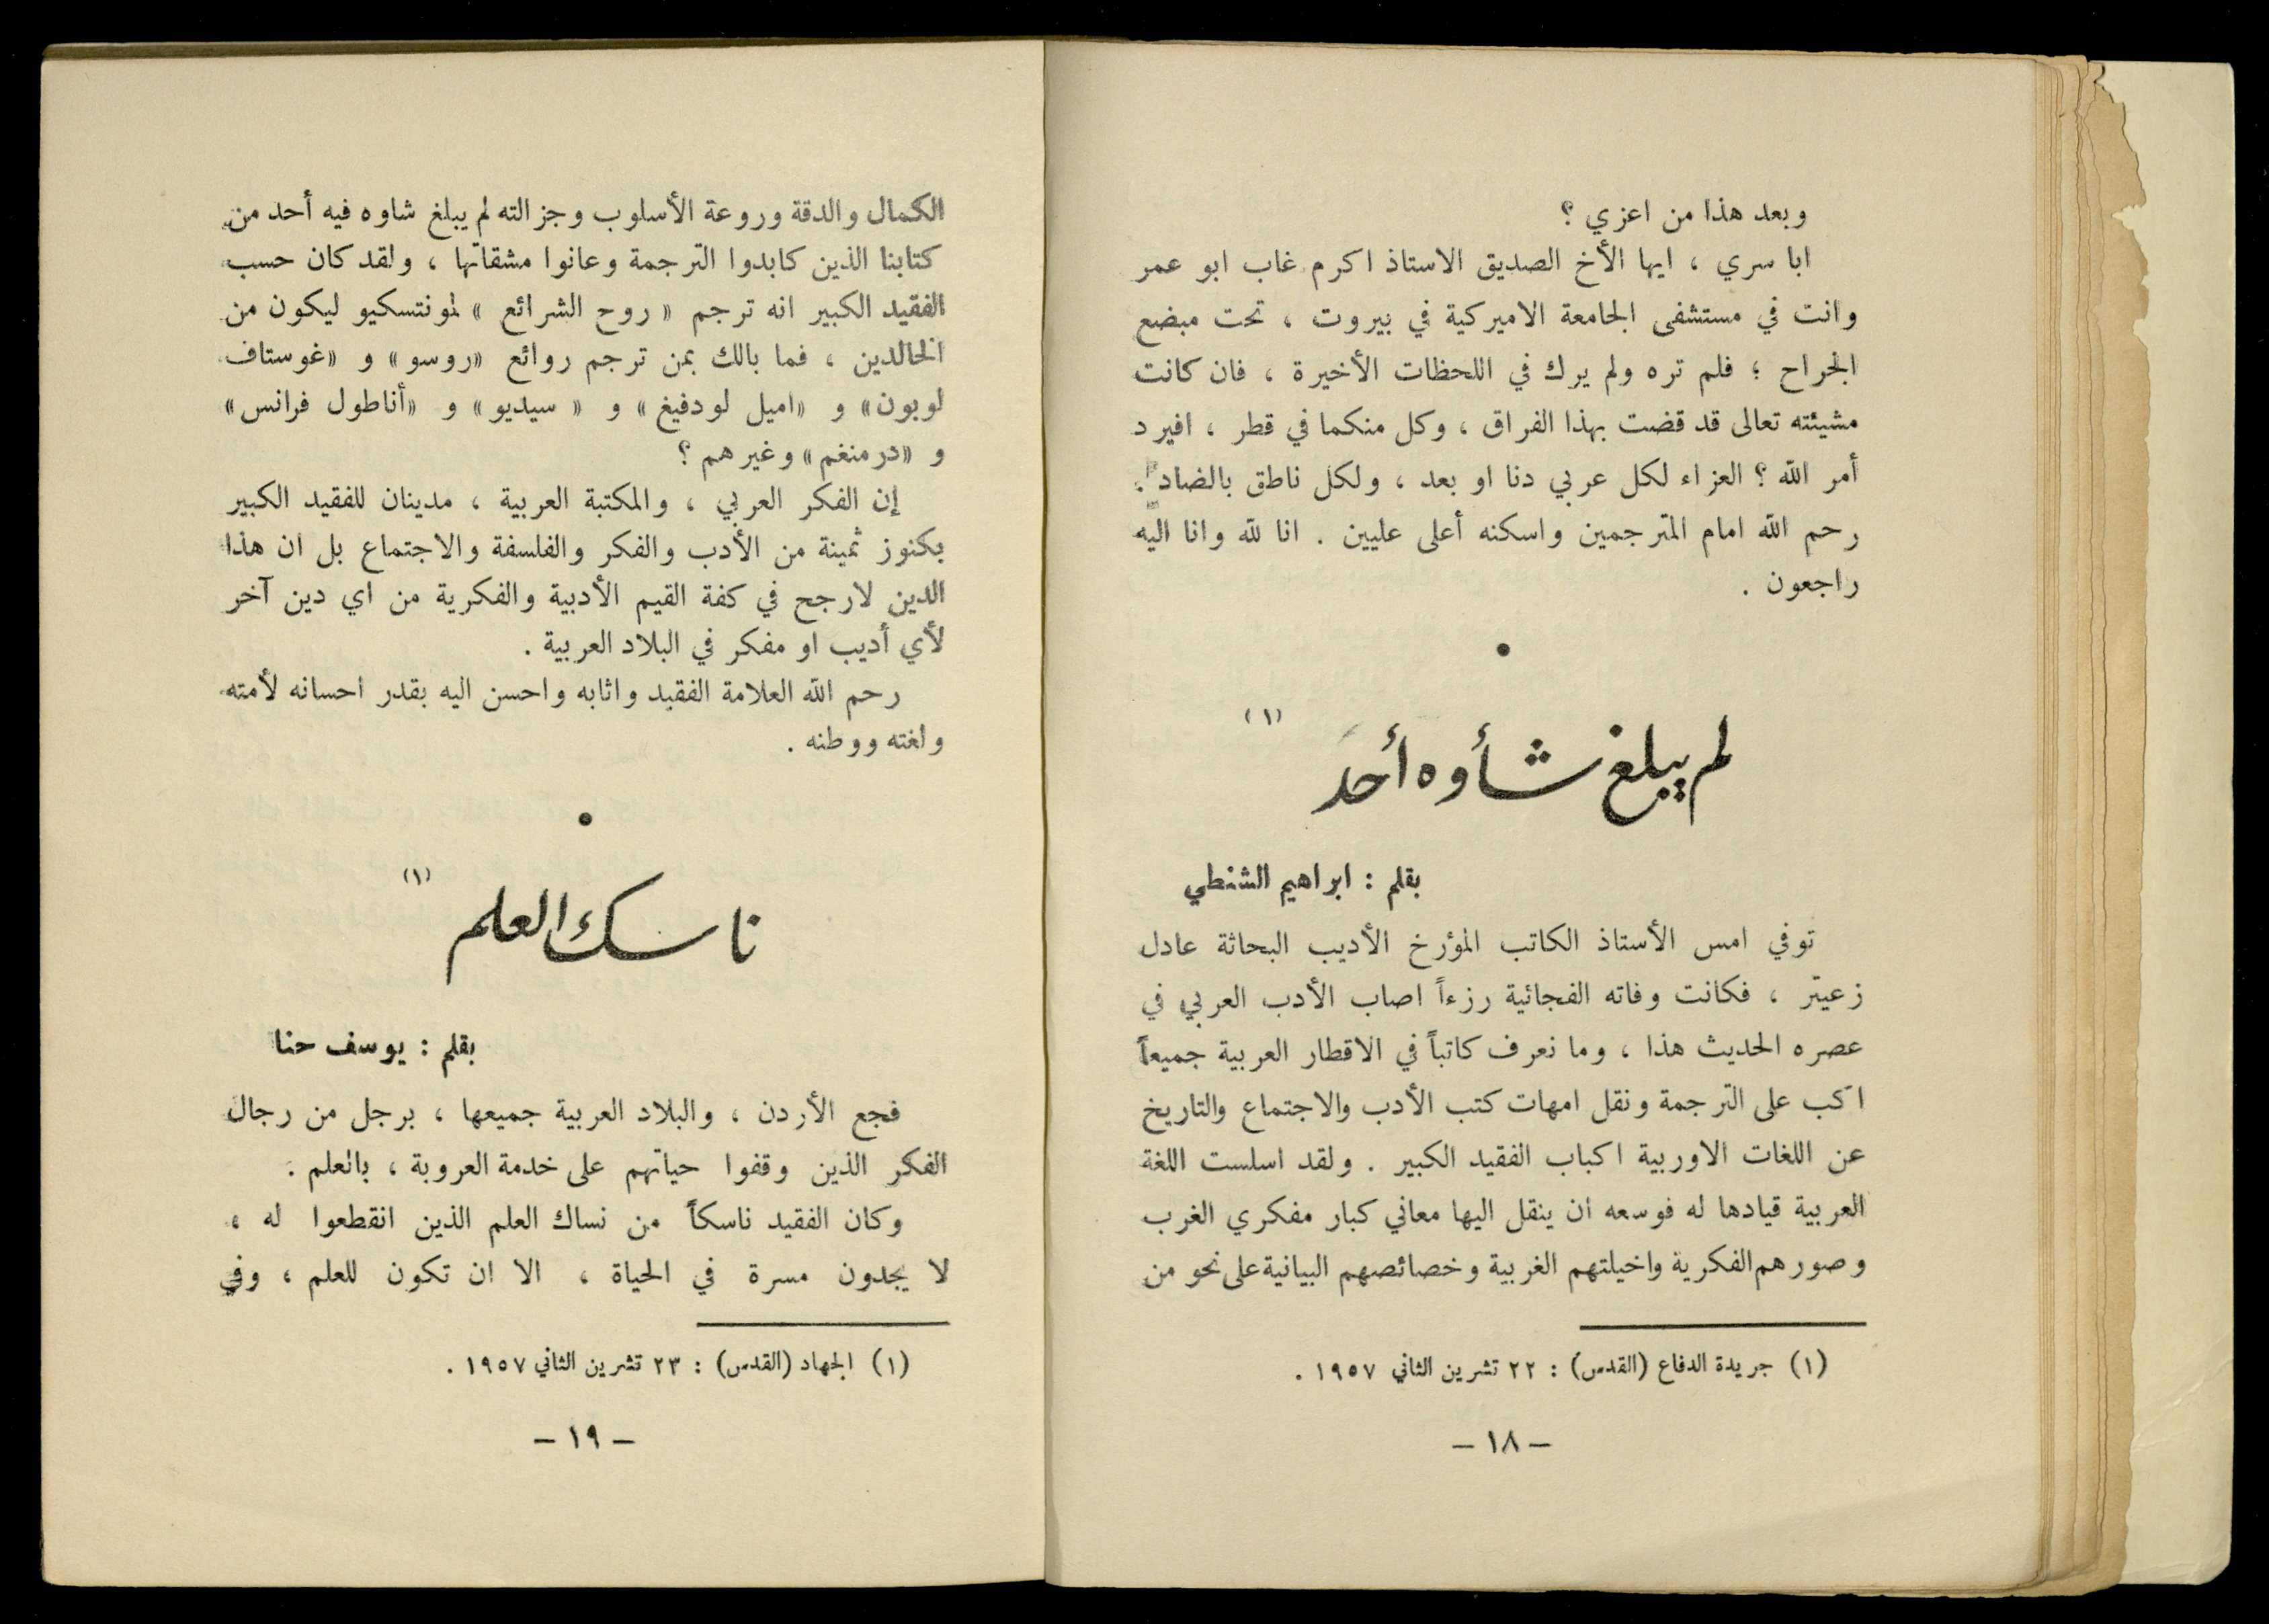 وبعد هذا من اعزي ؟
ابا سري ، ايها الأخ الصديق الاستاذ اكرم غاب ابو عمر
وانت في مستشفى الجامعة الاميركية في بيروت ، تحت مبضع
الجراح ؛ فلم تره ولم يرك في اللحظات الأخيرة ، فان كانت
مشيئته تعالى قد قضت بهذا الفراق ، وكل منكما في قطر ، افيرد
أمر الله ؟ العزاء لكل عربي دنا او بعد ، ولكل ناطق بالضاد .
رحم الله امام المترجمين واسكنه أعلى عليين . انا لله وانا اليه
راجعون .
لم يبلغ شأوه أحد (١)
بقلم : ابراهيم الشنطي
توفي امس الأستاذ الكاتب المؤرخ الأديب البحاثة عادل
زعيتر ، فكانت وفاته الفجائية رزءاً اصاب الأدب العربي في
عصره الحديث هذا ، وما نعرف كاتباً في الاقطار العربية جميعاً
اكب على الترجمة ونقل امهات كتب الأدب والاجتماع والتاريخ
عن اللغات الاوربية اكباب الفقيد الكبير . ولقد اسلست اللغة
العربية قيادها له فوسعه ان ينقل اليها معاني كبار مفكري الغرب
وصورهم الفكرية واخيلتهم الغربية وخصائصهم البيانية على نحو من
(١) جريدة الدفاع (القدس) : ٢٢ تشرين الثاني ١٩٥٧ .
– ١٨ –
الكمال والدقة وروعة الأسلوب وجزالته لم يبلغ شاوه فيه أحد من
كتابنا الذين كابدوا الترجمة وعانوا مشقاتها ، ولقد كان حسب
الفقيد الكبير انه ترجم « روح الشرائع » لمونتسكيو ليكون من
الخالدين ، فما بالك بمن ترجم روائع «روسو» و «غوستاف
لوبون» و «اميل لودفيغ» و « سيديو» و «أناطول فرانس»
و «درمنغم» وغيرهم ؟
إن الفكر العربي ، والمكتبة العربية ، مدينان للفقيد الكبير
بكنوز ثمينة من الأدب والفكر والفلسفة والاجتماع بل ان هذا
الدين لارجح في كفة القيم الأدبية والفكرية من اي دين آخر
لأي أديب او مفكر في البلاد العربية .
رحم الله العلامة الفقيد واثابه واحسن اليه بقدر احسانه لأمته
ولغته ووطنه .
ناسك العلم (١)
بقلم : يوسف حنا
فجع الأردن ، والبلاد العربية جميعها ، برجل من رجال
الفكر الذين وقفوا حياتهم على خدمة العروبة ، بالعلم .
وكان الفقيد ناسكاً من نساك العلم الذين انقطعوا له ،
لا يجدون مسرة في الحياة ، الا ان تكون للعلم ، وفي
(١) الجهاد (القدس) : ٢٣ تشرين الثاني ١٩٥٧ .
– ١٩ –